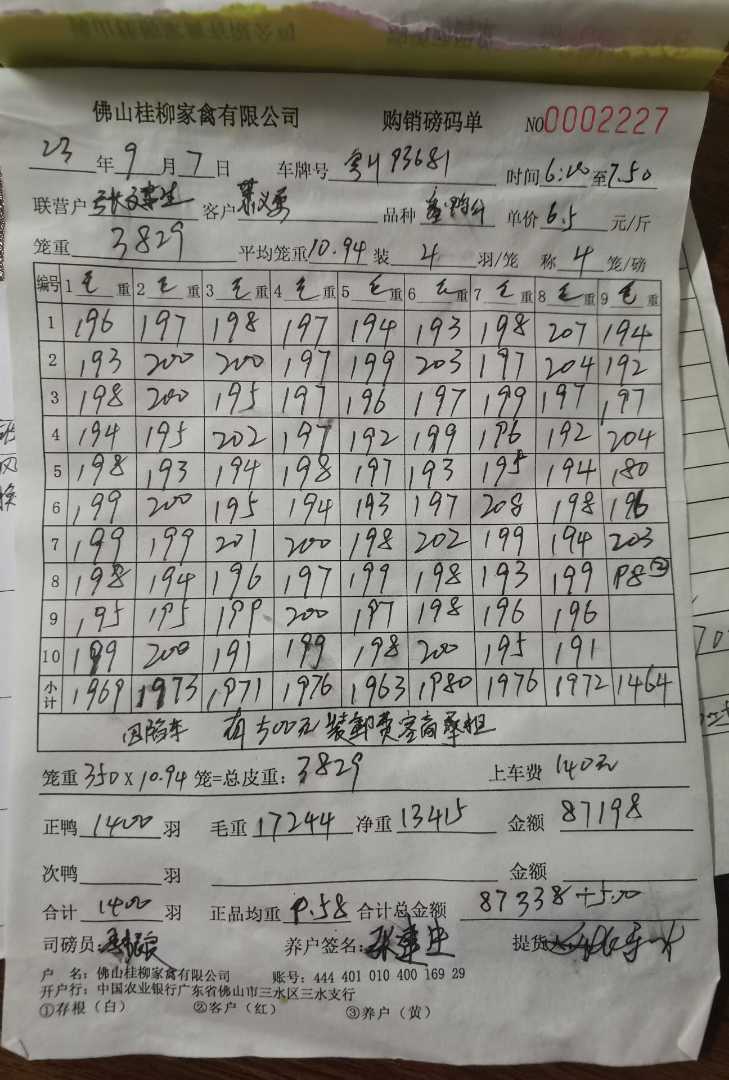 佛山桂柳家禽有限公司 购销磅码单 NO0002227
23年9月7日 车牌号 粤J93681 时间6:00至7.50
联营户 张建生 客户 品种 单价6.5元/斤
笼重 3829 平均笼重10.94 装4羽/笼 称4笼/磅
编号 1毛重 2毛重 3毛重 4毛重 5毛重 6毛重 7毛重 8毛重 9毛重
1 196 197 198 197 194 193 198 207 194
2 193 200 200 197 199 203 197 204 192
3 198 200 195 197 196 197 199 197 197
4 194 195 202 197 192 199 196 192 204
5 198 193 194 198 197 193 195 194 180
6 199 200 195 194 193 197 208 198 196
7 199 199 201 200 198 202 199 194 203
8 198 194 196 197 199 198 193 199 98②
9 195 195 199 200 197 198 196 196
10 199 200 191 199 198 200 195 191
小计 1969 1973 1971 1976 1963 1980 1976 1972 1464
因陷车 有500元装卸费客商承担
笼重350×10.94笼=总皮重:3829 上车费 140元
正鸭1400羽 毛重17244 净重13415 金额 87198
次鸭 羽 金额
合计1400羽 正品均重9.58 合计总金额 87338+500
司磅员: 养户签名:张建生 提货
户 名:佛山桂柳家禽有限公司 账号:444 401 010 400 169 29
开户行:中国农业银行广东省佛山市三水区三水支行
①存根(白) ②客户(红) ③养户(黄)